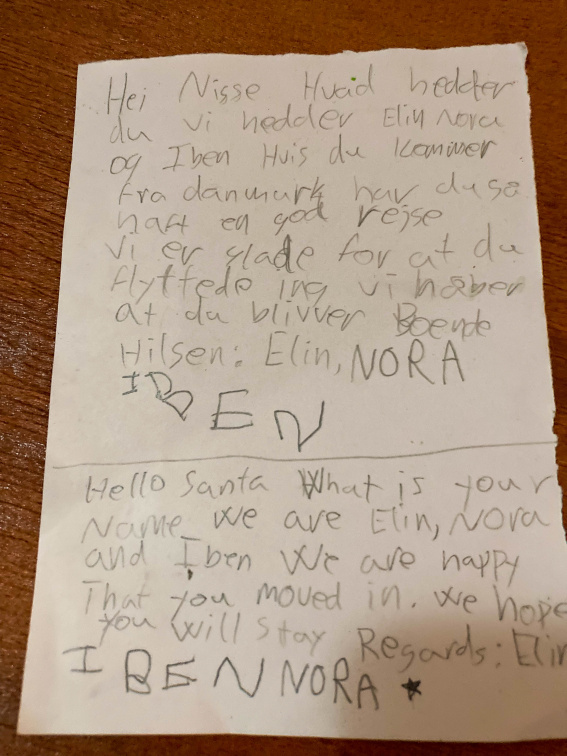 Hei Nisse Hvad hedder
du vi hedder Elin Nora
og Iben Hvis du kommer
fra danmurk har du så
haft en god rejse
vi er glade for at du
flyttede ing vi håber
at du blivver Boende
Hilsen: Elin, NORA
IBEN
Hello Santa What is your
Name We are Elin, Nora
and Iben We are happy
That you moved in. we hope
you will stay Regards: Elin
IBEN NORA